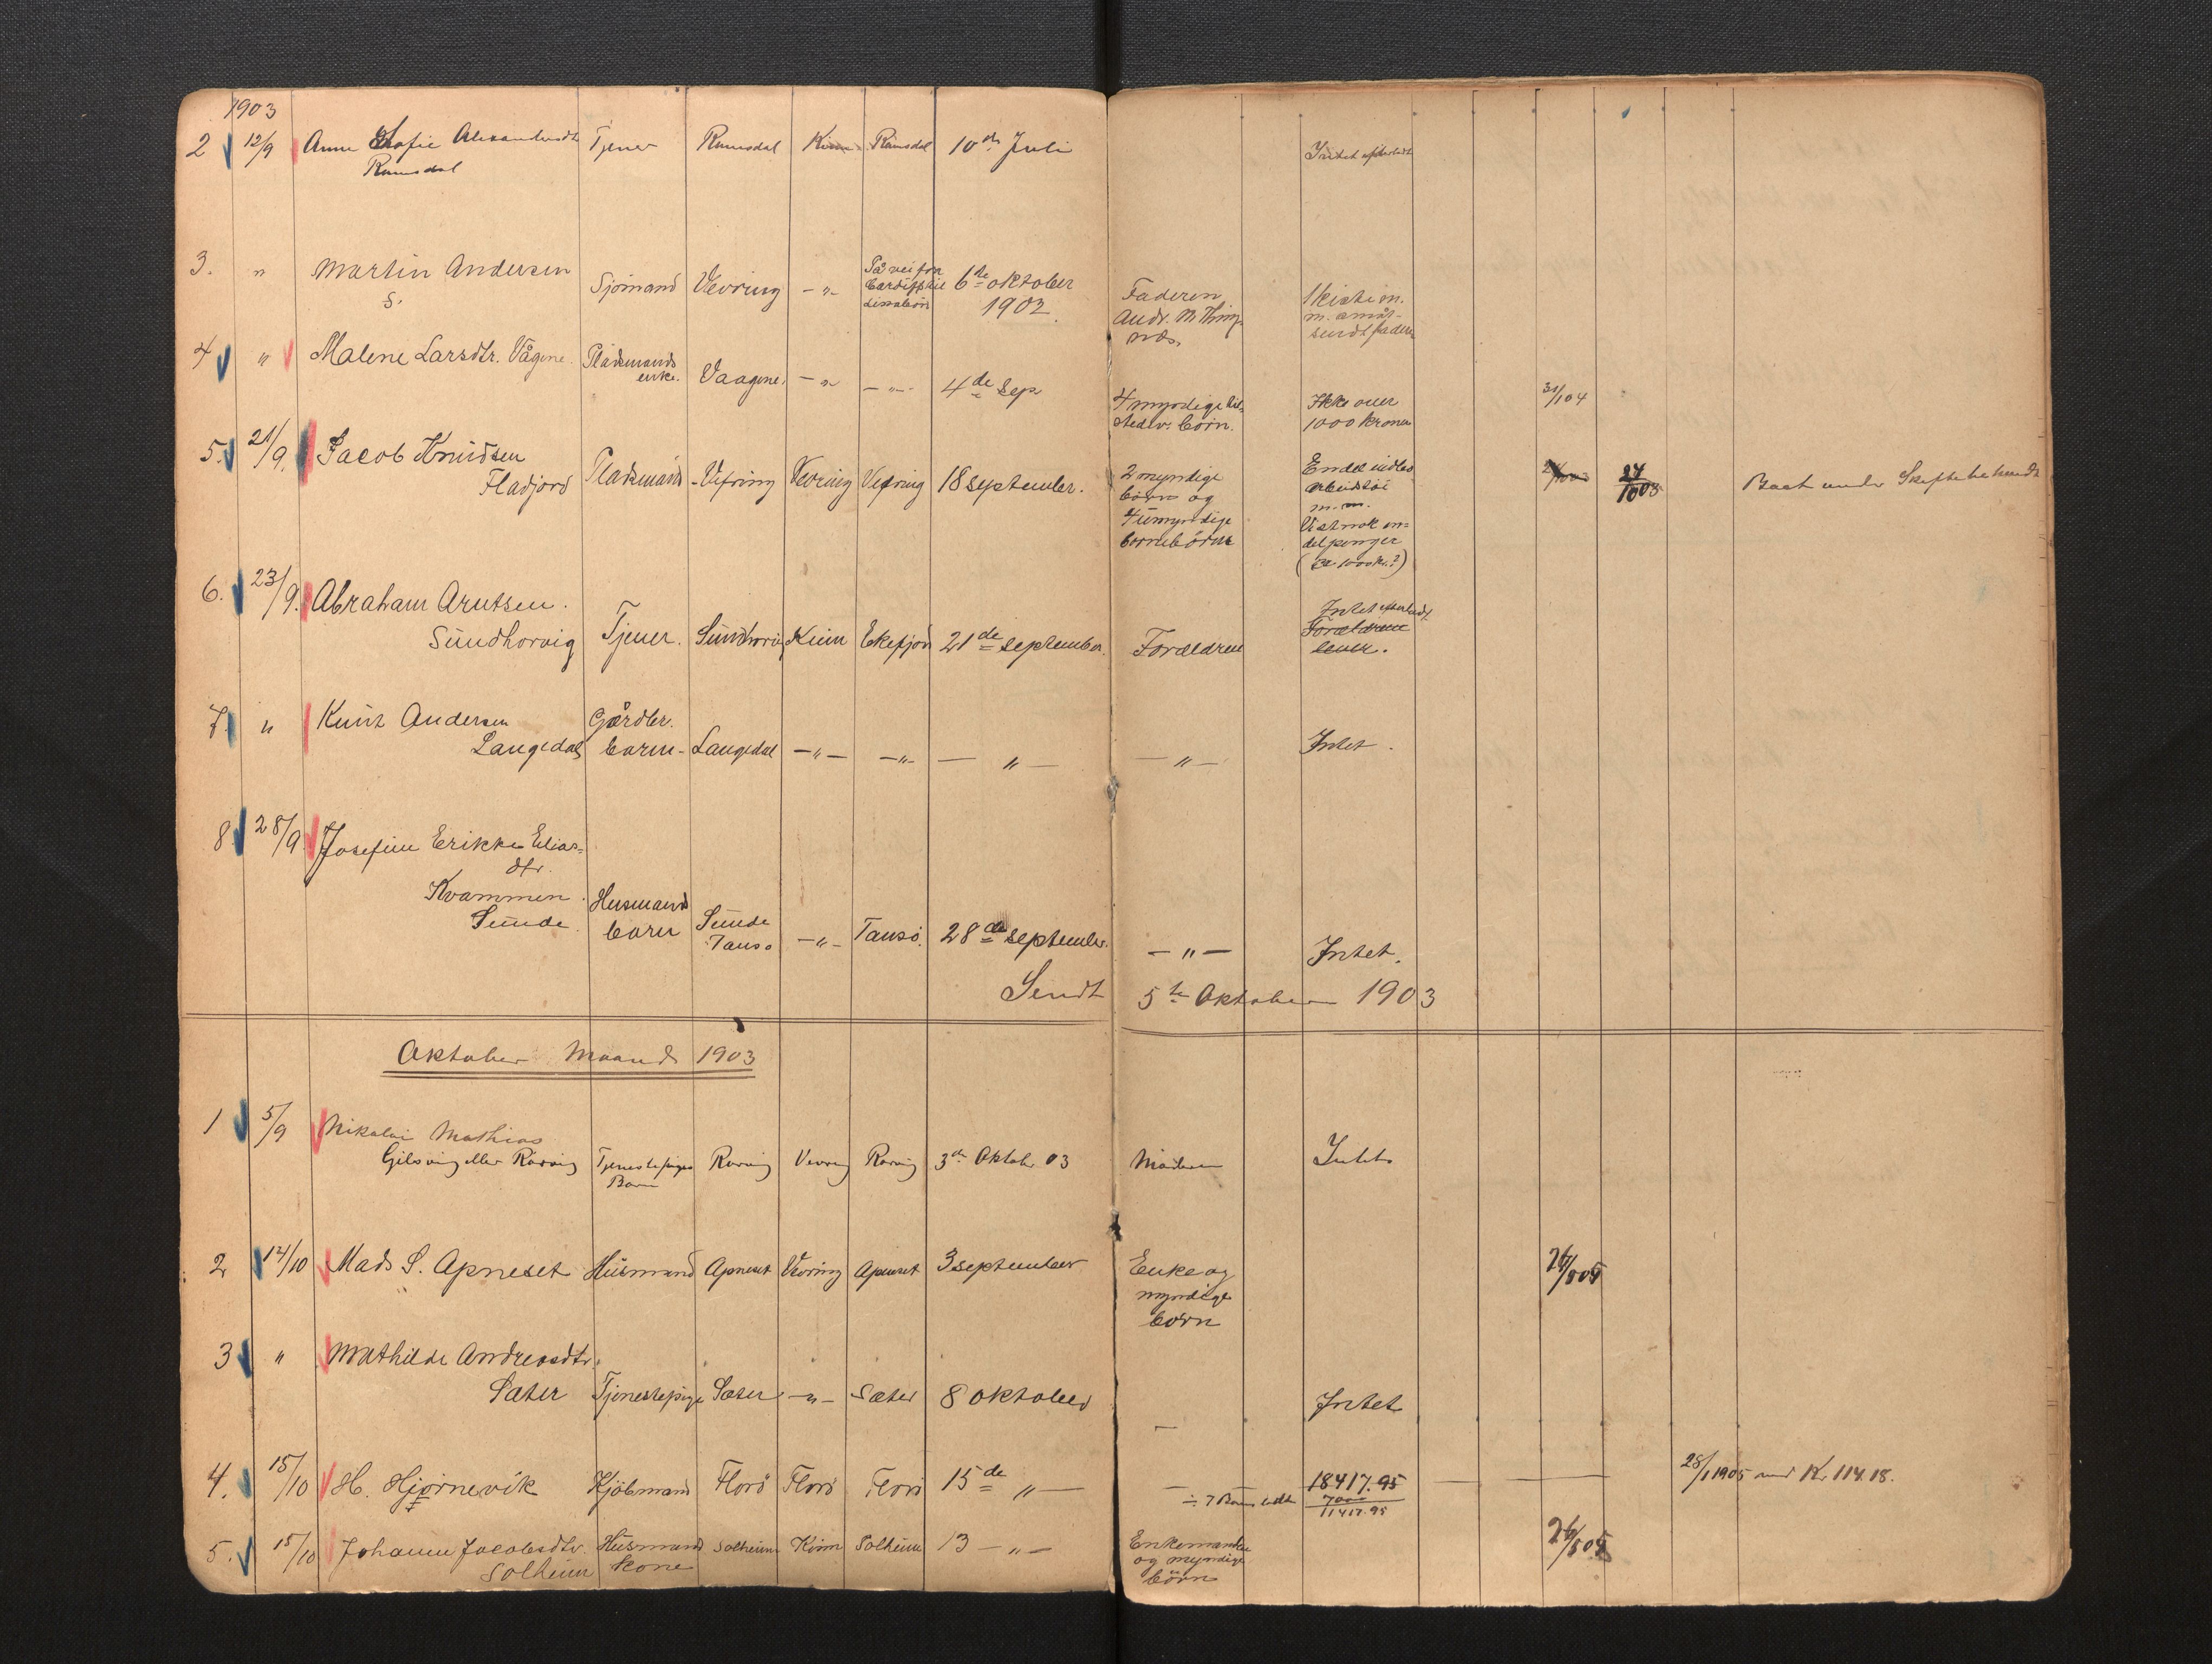 1903
2 12/9 Anne Sofie Alexandersdt Tjener Ramsdal Kinn Ramsdal 10de Juli Intet efterladt
Ramsdal
3. " Martin Andersen Sjømand Vevring -"- På vei fra 6te oktober Faderen 1 kiste m.
S. Cardiff til 1902 Andr. M. m. småt-
sendt faderen
4 " Malene Larsdtr. Vågene. Pladsmands Vaagene. -"- -"- 4de Sep 4 myndige til- Ikke over 31/1 04
enke. stedev. børn. 1000 kroner
5. 21/9. Jacob Knudsen Pladsmand Vefring Vevring Vefring 18 september. 2 myndige Endel indbo 24/10 03 Baat under
Fladjord børn og arbeidstøi
4 umyndige m.m.
børnebørn Vistnok en-
del penger
(Ca 1000 kr.?)
6. 23/9. Abraham Arntsen. Intet efterladt
Sundhorvig Tjener. Sundhorvig Kinn Ekefjord 21de september. Forældrene Forældrene
lever.
7. " Knut Andersen Gårdbr.
Langedal barn Langedal -"- -"- - " - - " - Intet.
8. 28/9. Josefine Erikke Elias-
dtr.
Kvammen Husmands
Sunde. barn Sunde -"- Tansø. 28de september. - " - Intet.
Tansø
Sendt 5te Oktober 1903
Oktober Maaned 1903
1 5/9 Nikolai Mathias
Gilsvig eller Rørvig Tjenestepiges Rørvig Vevring Rørvig 3de Oktobr 03 Moderen Intet
Barn
2 12/10 Mads S. Apneset Husmand Apneset Vevring Apneset 3 september Enke og
myndige
børn
3 " Mathilde Andreasdtr.
Sæter Tjenestepige Sæter -"- Sæter 8 oktober - Intet
4. 15/10 H. Hjørnevik Kjøbmand Florø Florø Florø 15de " - - 18417.95 28/1 1905 med Kr. 114.18.
7000
11417.95
5. 15/10 Johanne Jacobsdtr. Husmands Solheim Kinn Solheim 13 - " - Enkemanden
Solheim kone og myndige
børn